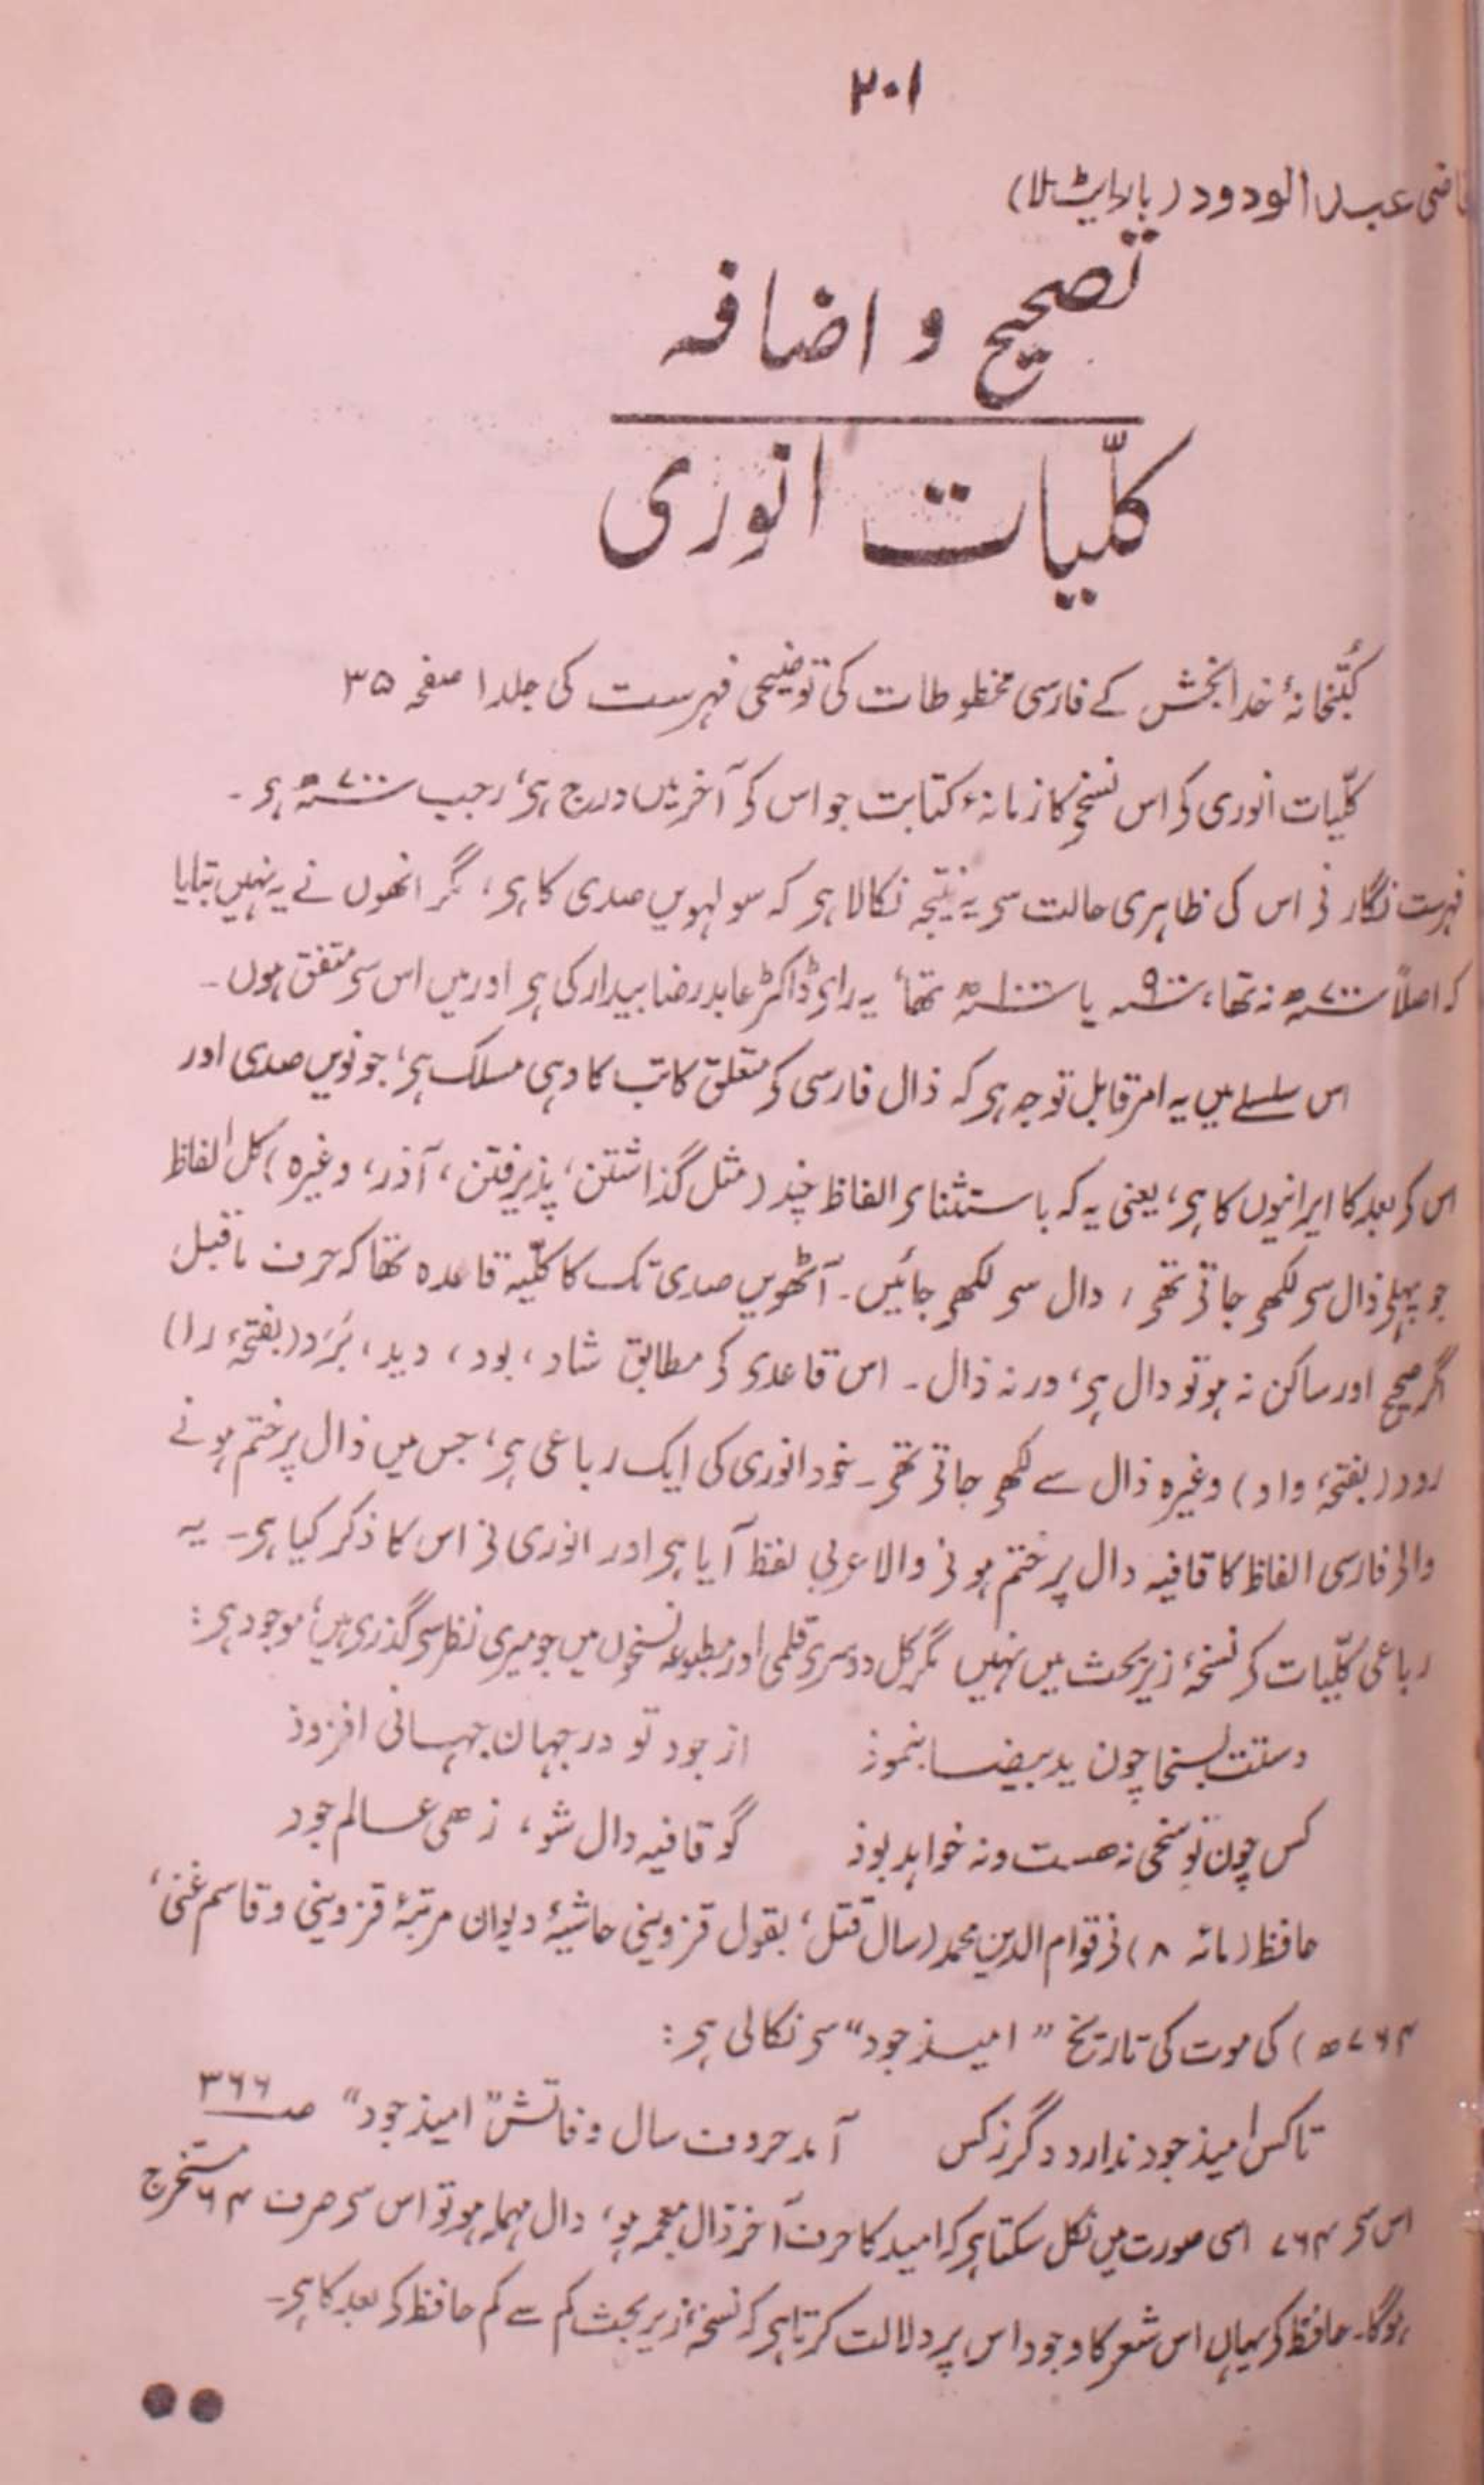 ۲۰۱
قاضی عبدالودود (بارایٹ لا)
تصحیح و اضافہ
کلّیات انوری
کُتبخانۂ خدا بخش کے فارسی مخطوطات کی توضیحی فہرست کی جلد ۱ صفحہ ۳۵
کلّیات انوری کو اس نسخے کا زمانۂ کتابت جو اس کو آخر میں درج ہی، رجب سنہ ۷۰۰ھ ہی۔
فہرست نگار نی اس کی ظاہری حالت سی یہ نتیجہ نکالا ہی کہ سولہویں صدی کا ہی، مگر انھوں نے یہ نہیں بتایا
کہ اصلاً سنہ ۷۰۰ھ نہ تھا، سنہ ۹۰۰ یا سنہ ۱۰۰۰ھ تھا، یہ رای ڈاکٹر عابد رضا بیدار کی ہی اور میں اس سی متفق ہوں۔
اس سلسلے میں یہ امر قابل توجہ ہی کہ ذال فارسی کو متعلق کاتب کا وہی مسلک ہی، جو نویں صدی اور
اس کو بعد کا ایرانیوں کا ہی، یعنی یہ کہ باستثنای الفاظ چند (مثل گذاشتن، پذیرفتن، آذر، وغیرہ) کل الفاظ
جو پہلی ذال سی لکھی جاتی تھی، دال سی لکھی جائیں۔ آٹھویں صدی تک کا کلّیہ قاعدہ تھا کہ حرف ماقبل
اگر صحیح اور ساکن نہ ہو تو دال ہی، ورنہ ذال۔ اس قاعدی کو مطابق شاد، بود، دید، بَرَد (بفتحۂ را)
رود (بفتحۂ واو) وغیرہ ذال سے لکھی جاتی تھی۔ خود انوری کی ایک رباعی ہی، جس میں ذال پر ختم ہونے
والی فارسی الفاظ کا قافیہ دال پر ختم ہونی والا عربی لفظ آیا ہی اور انوری نی اس کا ذکر کیا ہی۔ یہ
رباعی کلّیات کو نسخۂ زیر بحث میں نہیں مگر کل دوسری قلمی اور مطبوعہ نسخوں میں جو میری نظر سی گذری ہیں، موجود ہی:
دستت بسخا چون ید بیضا بنموذ از جود تو در جہان جہانی افزوذ
کس چون تو سخی نہ هست ونہ خواہد بوذ گو قافیہ دال شو، زهی عالم جود
حافظ (مائہ ۸) نی قوام الدین محمد (سال قتل، بقول قزوینی حاشیۂ دیوان مرتبۂ قزوینی و قاسم غنی،
۷۶۴ھ) کی موت کی تاریخ "امیذ جود" سی نکالی ہی:
تا کس امیذ جود ندارد دگر زکس آمد حروف سال وفاتش "امیذ جود" صہ ۳۶۶
اس سی ۷۶۴ اسی صورت میں نکل سکتا ہی کہ امید کا حرف آخر ذال معجمہ ہو، دال مہملہ ہو تو اس سی صرف ۶۴ مستخرج
ہوگا۔ حافظ کو یہاں اس شعر کا وجود اس پر دلالت کرتا ہی کہ نسخۂ زیر بحث کم سے کم حافظ کو بعد کا ہی۔